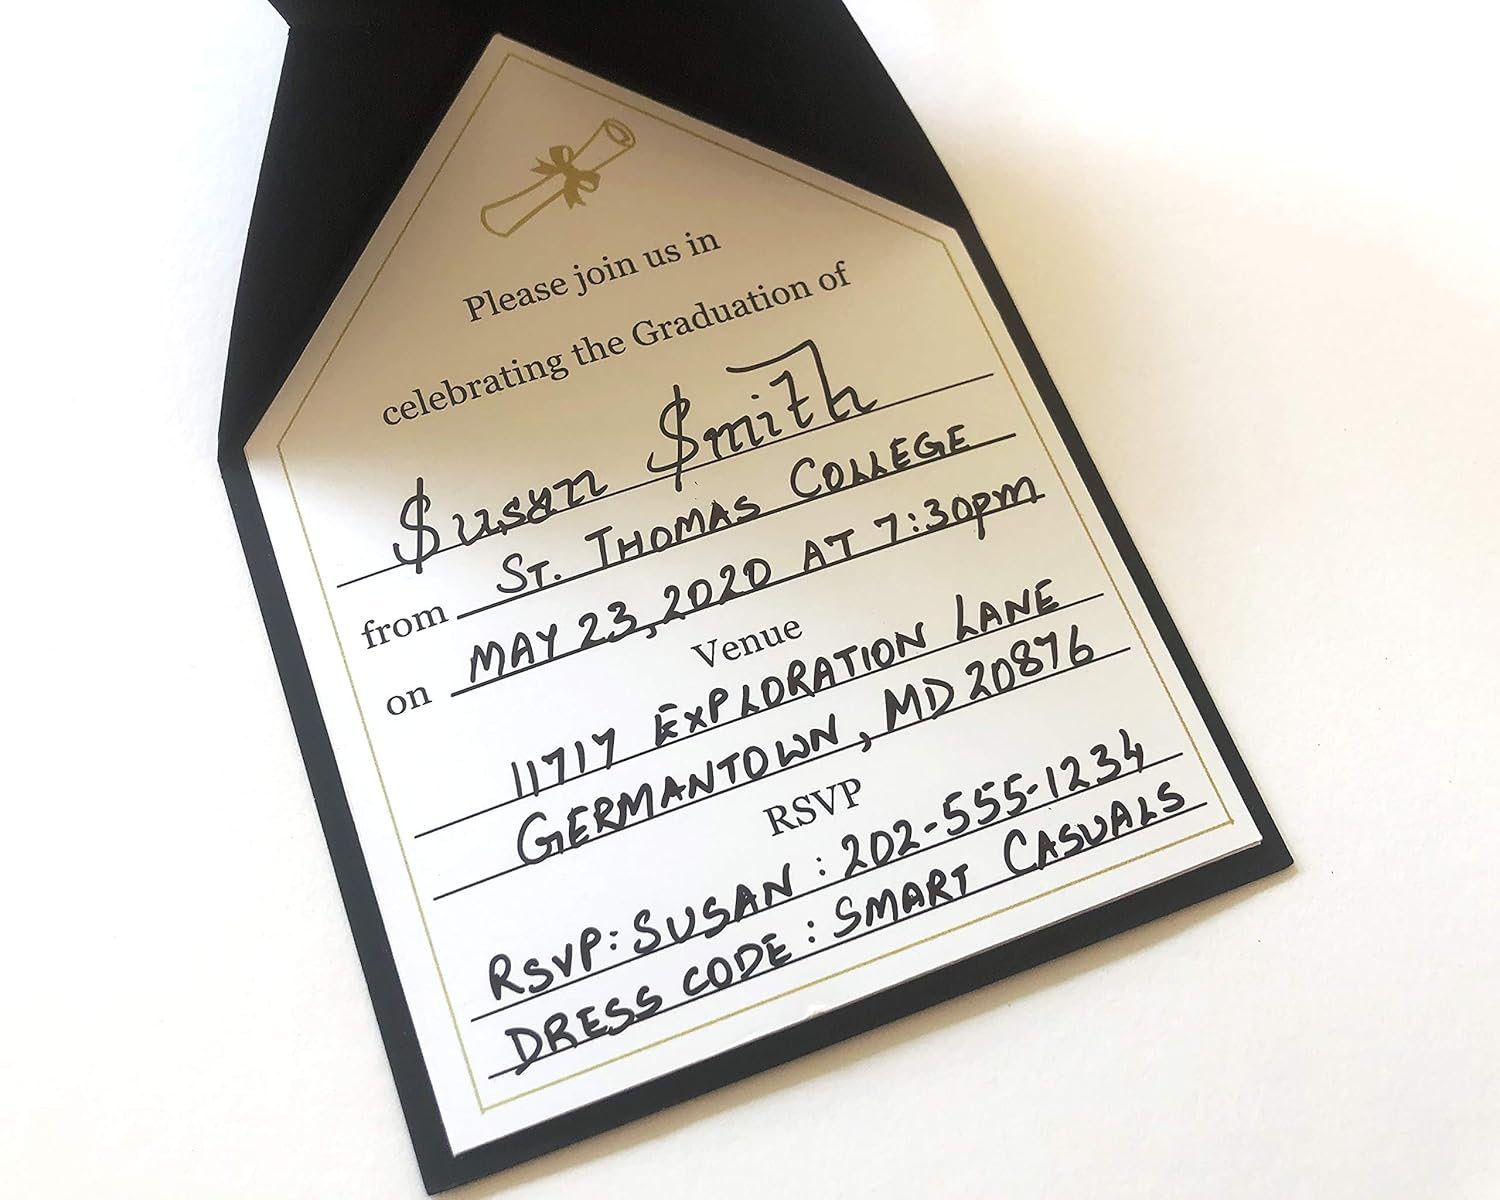 Please join us in
celebrating the Graduation of
Susan Smith
from ST. THOMAS COLLEGE
on MAY 23, 2020 AT 7:30pm
Venue
11717 EXPLORATION LANE
GERMANTOWN, MD 20876
RSVP
RSVP: SUSAN : 202-555-1234
DRESS CODE : SMART CASUALS